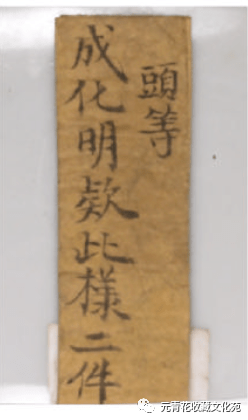 頭等
成化明欵此樣二件
元青花收藏文化苑